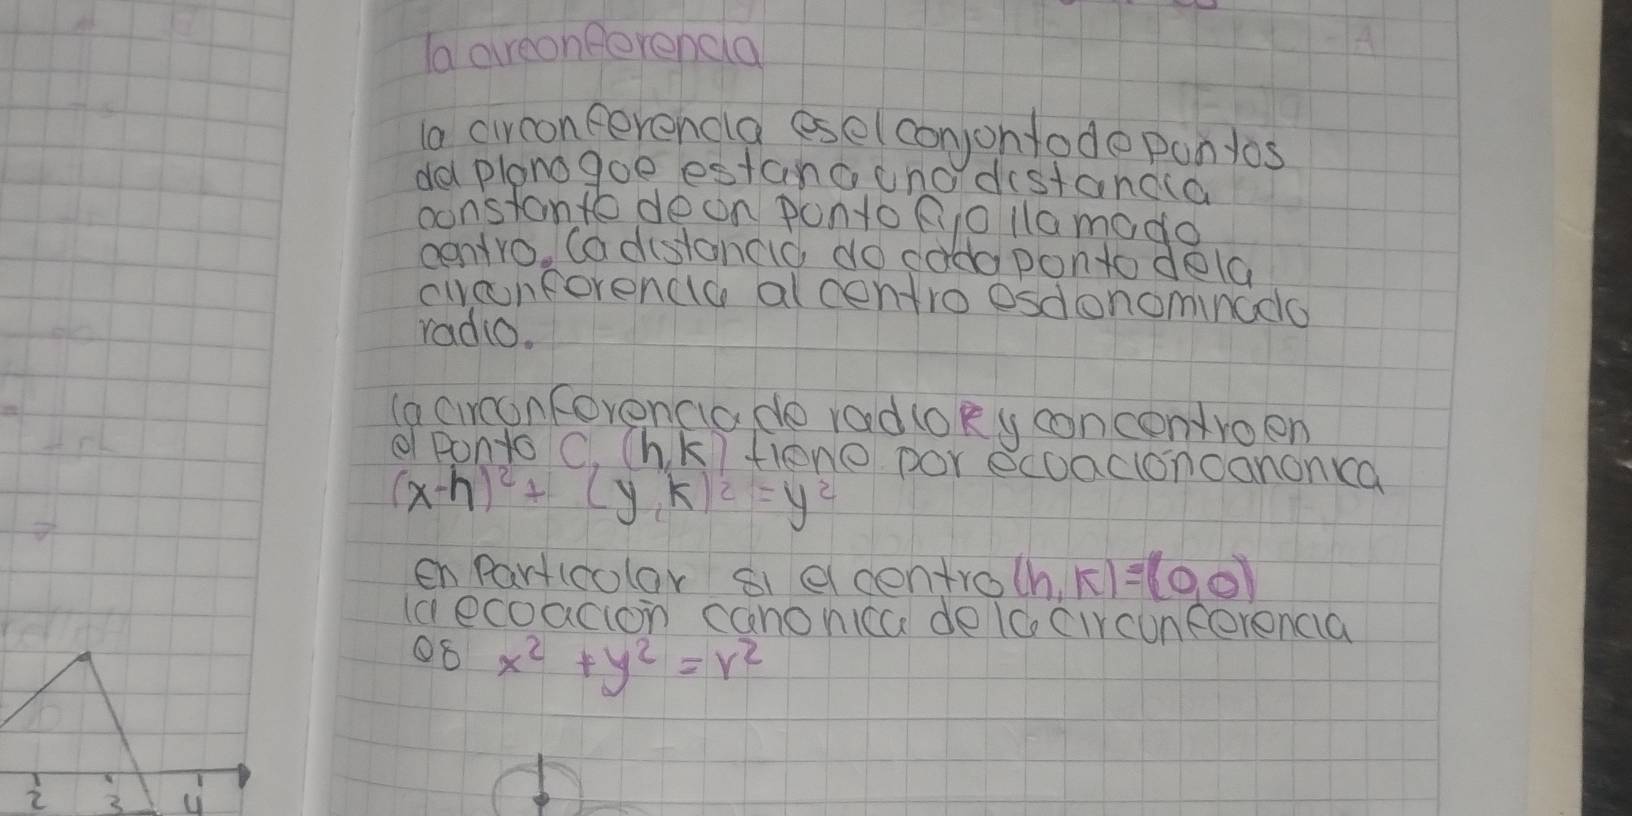 la circonferencia
la circonferencia es el conjonto de puntos
del plano qoe estan a una distancia
constante de on ponto fijo llamado
centro. la distancia de cada ponto de la
circunferencia al centro es denominado
radio.
la circonferencia de radio R y con centro en
el ponto C, (h, k) tiene por ecoacion canonica
(x-h)² + (y, k)² = y²
en particolar si el centro (h, k) = (0,0)
la ecoación canonica de la circunferencia
es x² + y² = r²
2 3 4